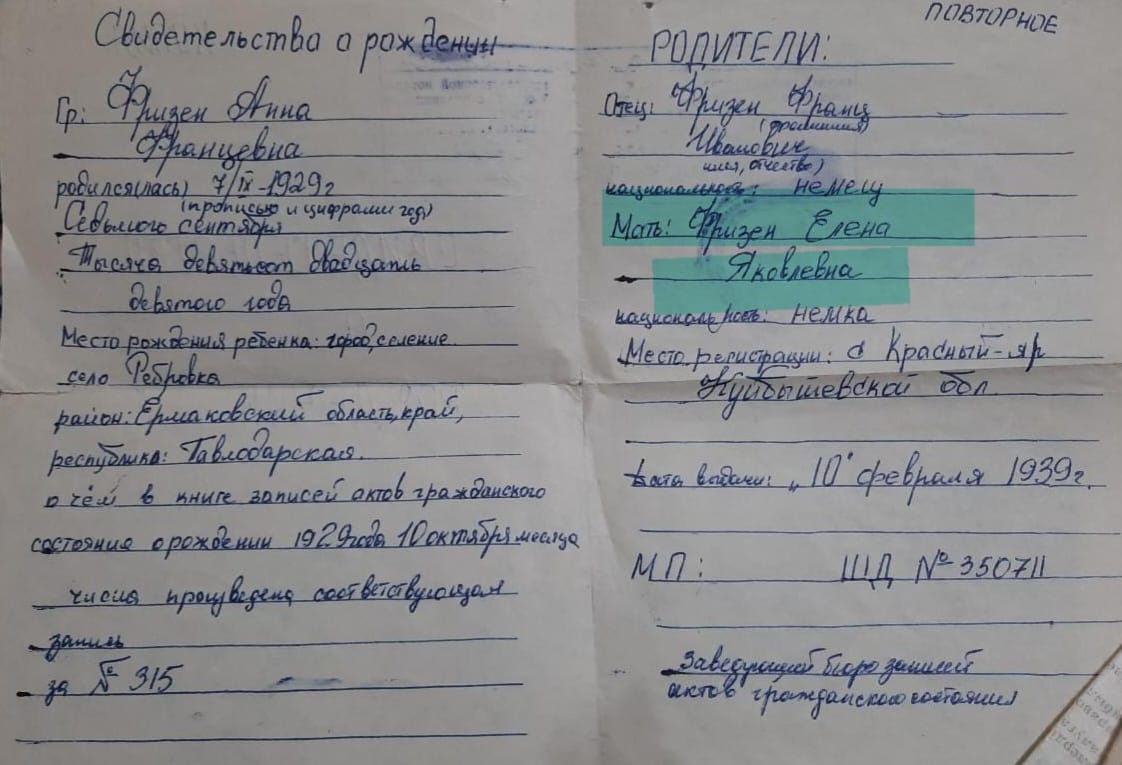 Свидетельства о рождении
Гр: Фризен Анна
Францевна
родился(лась) 7/IX-1929г
(прописью и цифрами год)
Седьмого сентября
Тысяча девятьсот двадцать
девятого года
Место рождения ребенка: город, селение
село Ребровка
район: Ермаковский область, край,
республика: Павлодарская.
о чём в книге записей актов гражданского
состояния о рождении 1929 года 10 октября месяца
числа произведена соответствующая
запись
за № 315
ПОВТОРНОЕ
РОДИТЕЛИ:
Отец: Фризен Франц
(фамилия)
Иванович
имя, отчество)
национальность: немец
Мать: Фризен Елена
Яковлевна
национальность: немка
Место регистрации: с Красный-яр
Куйбышевской обл.
Дата выдачи: "10" февраля 1939г.
МП: ШД № 350711
Заведующий бюро записей
актов гражданского состояния